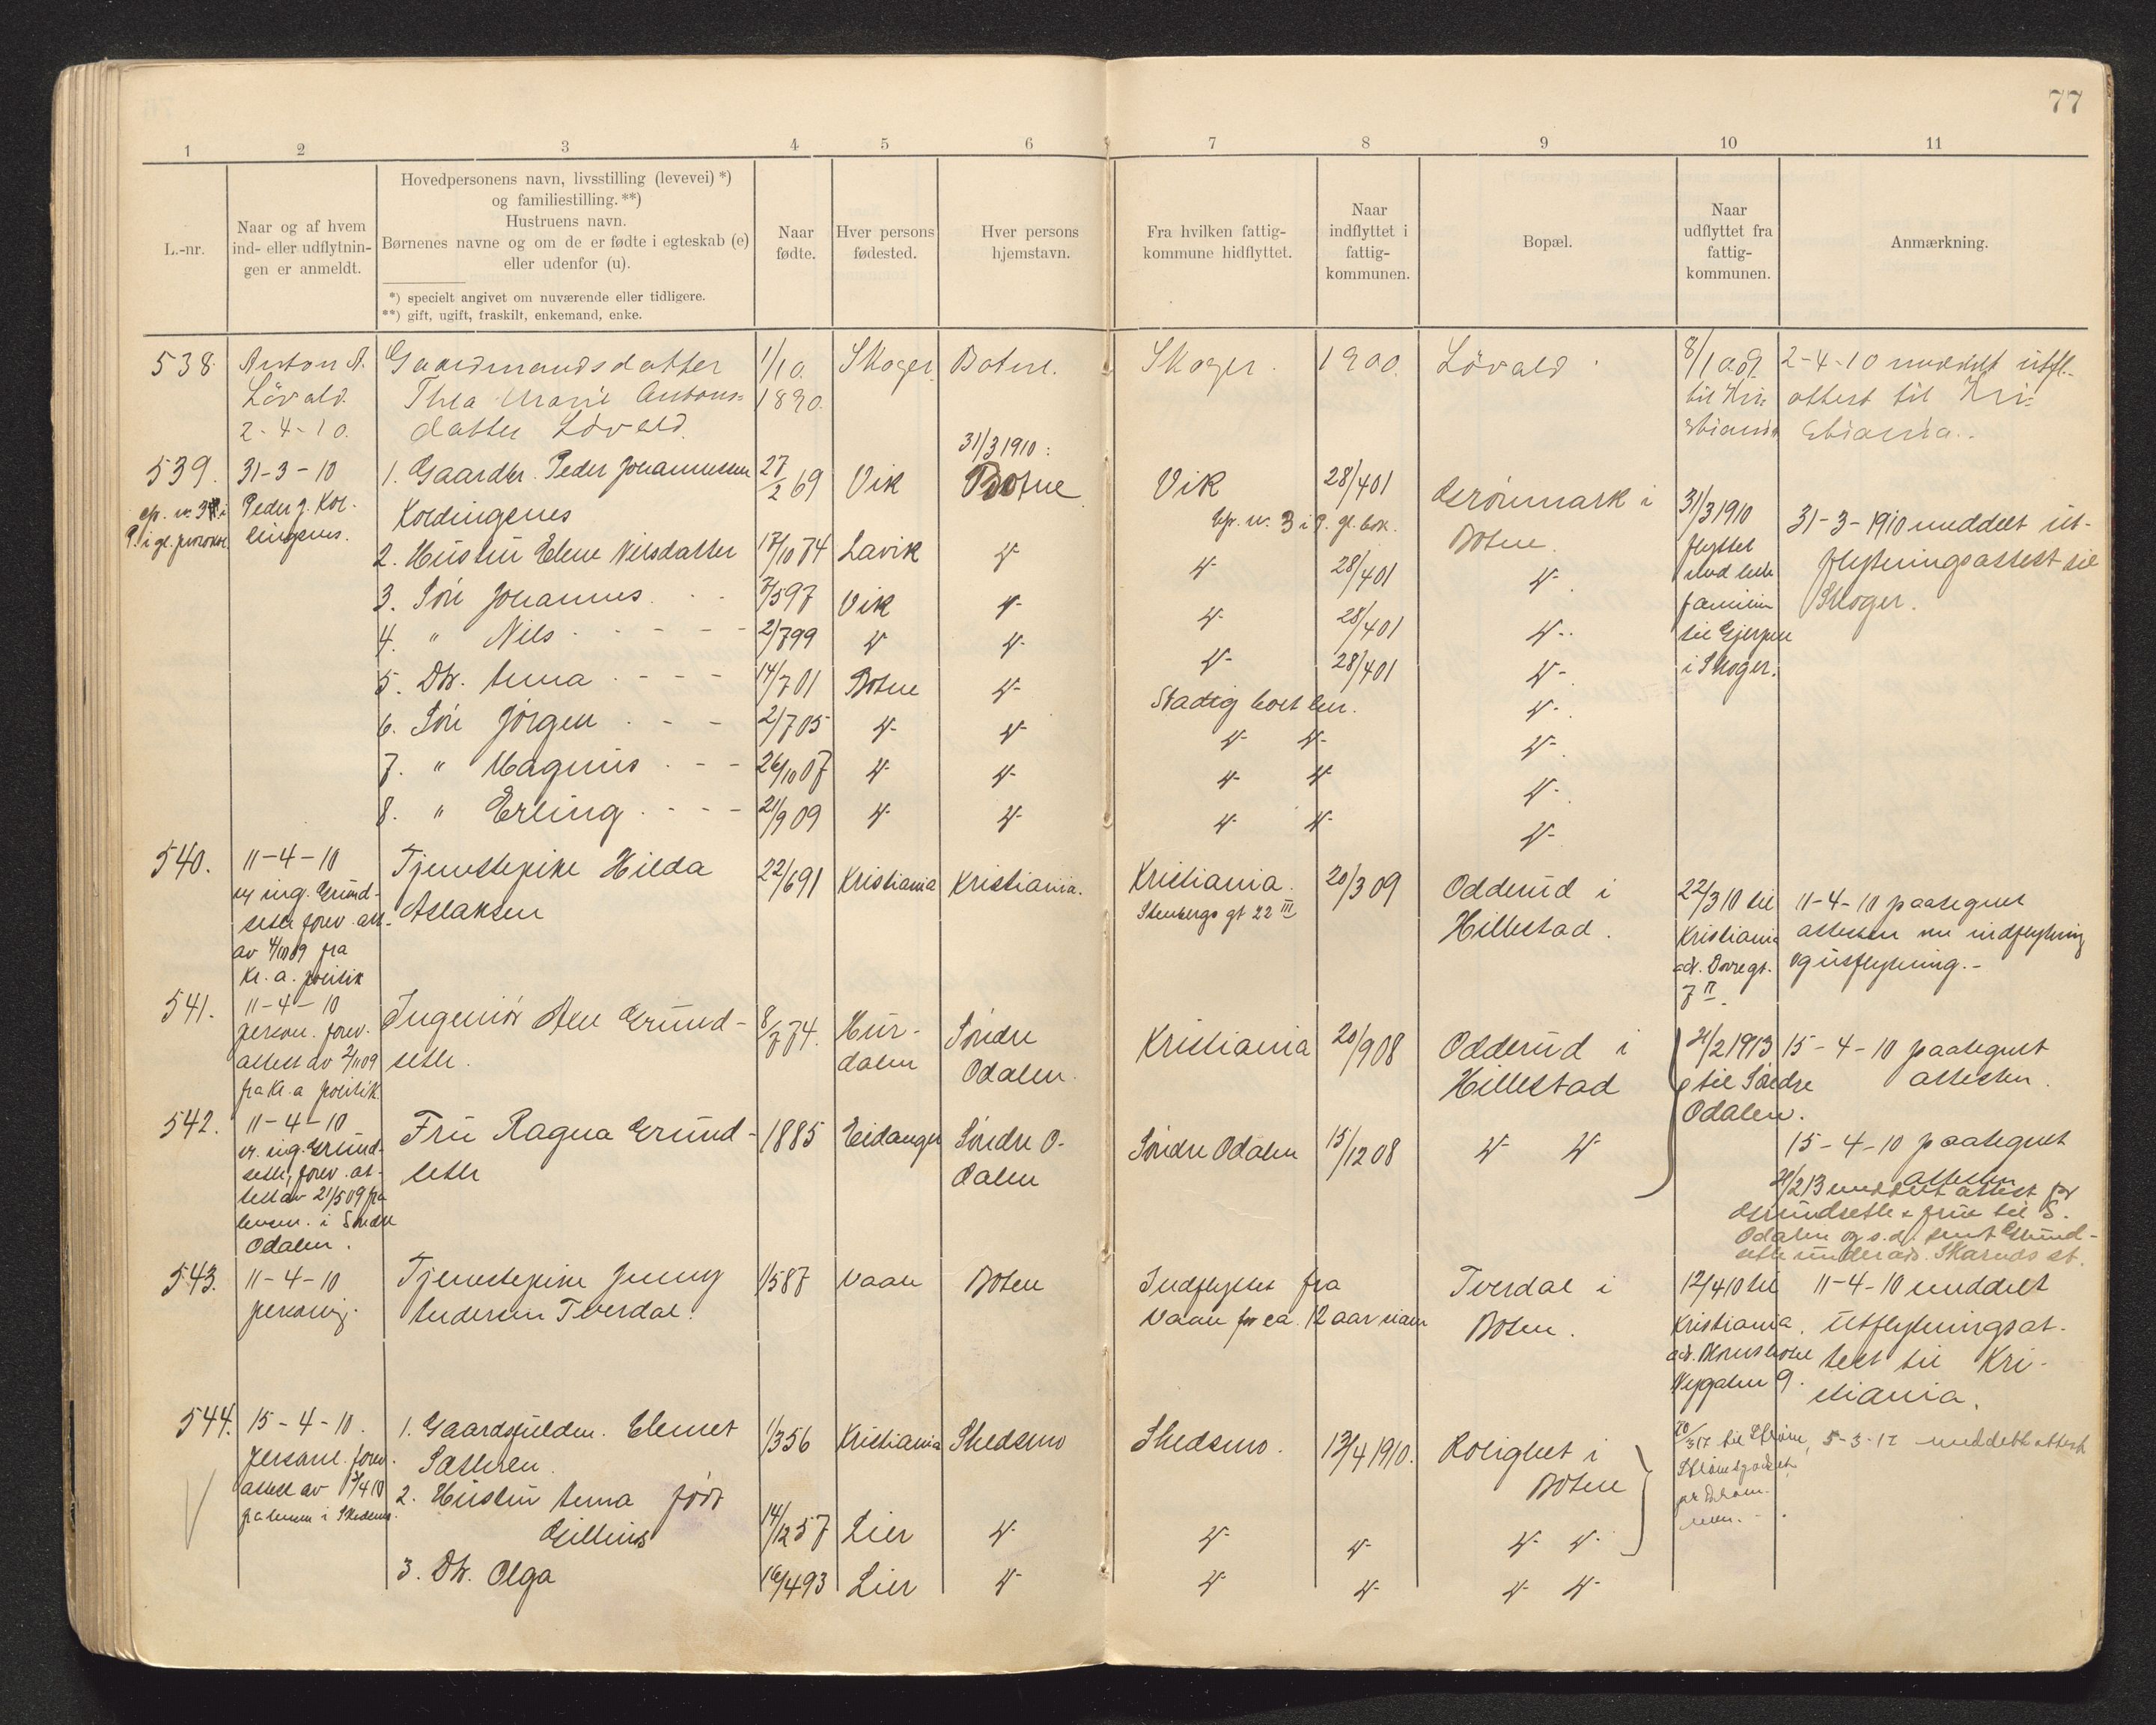 77
1 2 3 4 5 6 7 8 9 10 11
L.-nr.
Naar og af hvem
ind- eller udflytnin-
gen er anmeldt.
Hovedpersonens navn, livsstilling (levevei) *)
og familiestilling. **)
Hustruens navn.
Børnenes navne og om de er fødte i egteskab (e)
eller udenfor (u).
*) specielt angivet om nuværende eller tidligere.
**) gift, ugift, fraskilt, enkemand, enke.
Naar
fødte.
Hver persons
fødested.
Hver persons
hjemstavn.
Fra hvilken fattig-
kommune hidflyttet.
Naar
indflyttet i
fattig-
kommunen.
Bopæl.
Naar
udflyttet fra
fattig-
kommunen.
Anmærkning.
538.
Anton A.
Lövald.
2-4-10.
Gaardmandsdatter
Thea Marie Antons=
datter Lövald.
1/10.
1890.
Skoger.
Botne.
Skoger.
1900.
Lövald.
8/10.09.
til Kri=
stiania
2-4-10 meddelt utfl.
attest til Kri=
stiania.
539.
31-3-10
Peder J. Kol-
1. Gaardbr. Peder Johannessen
Koldingsnes
27/2 69
Vik
31/3 1910:
Botne
Vik
28/4 01
Grönmark i
Botne.
31/3 1910
flyttet
med hele
familien
til Gjerpen
i Skoger.
31-3-1910 meddelt ut-
flytningsattest til
Skoger.
2. Hustru Elene Nilsdatter
17/10 74
Lavik
28/4 01
3. Sön Johannes
7/5 97
Vik
28/4 01
4. " Nils
2/7 99
28/4 01
5. Dtr. Anna
14/7 01
Botne
Stadig boet her.
6. Sön Jörgen
2/7 05
7. " Magnus
26/10 07
8. " Erling
21/9 09
540.
11-4-10
av ing. Grund-
setle forev. att-
av 4/10 09 fra
Kr.a. politik
Tjenestepike Hilda
Aslaksen
22/6 91
Kristiania
Kristiania.
Kristiania.
Stenbergs gt 22 III
20/3 09
Odderud i
Hillestad.
22/3 10 til
Kristiania
ad. Dovregt.
7 II.
11-4-10 paategnet
attesten om indflytning
og utflytning.-
541.
11-4-10
person. forev.
attest av 2/11 09
fra Kr.a politik.
Ingeniör Aen Grund-
setle.
8/7 74.
Hur-
dalen
Söndre
Odalen.
Kristiania
20/9 08
Odderud i
Hillestad
21/2 1913
til Söndre
Odalen.
15-4-10 paategnet
attesten.
542.
11-4-10
av. ing. Grund-
setle, forev. at-
test av 21/5 09 fra
lensm. i Söndre
Odalen.
Fru Ragna Grund-
setle
1885
Eidanger
Söndre O-
dalen
Söndre Odalen
15/12 08
15-4-10 paategnet
attesten
21/2 13 meddelt attest for
Grundsetle & frue til S.
Odalen og s.d. sent Grund-
setle under ads. Skarnds st.
543.
11-4-10
personlig.
Tjenestepike Jenny
Andersen Tverdal.
1/5 87
Vaale
Botne
Indflyttet fra
Vaale for ca. 12 aar siden
Tverdal i
Botne.
12/4 10 til
Kristiania.
Nygaten 9.
11-4-10 meddelt
utflytningsat-
test til Kri-
stiania.
544.
15-4-10.
Personl. forev.
attest av 13/4 10
fra lensm. i Skedsmo.
1. Gaardsfuldm. Clemet
Sætteren.
1/3 56
Kristiania
Skedsmo
Skedsmo.
13/4 1910.
Rolighet i
Botne
20/3 12 til Ström,
5-3-12 meddelt attest
2. Hustru Anna född
Gillius
14/12 57
Lier
3. Dtr. Olga
16/4 93
Lier